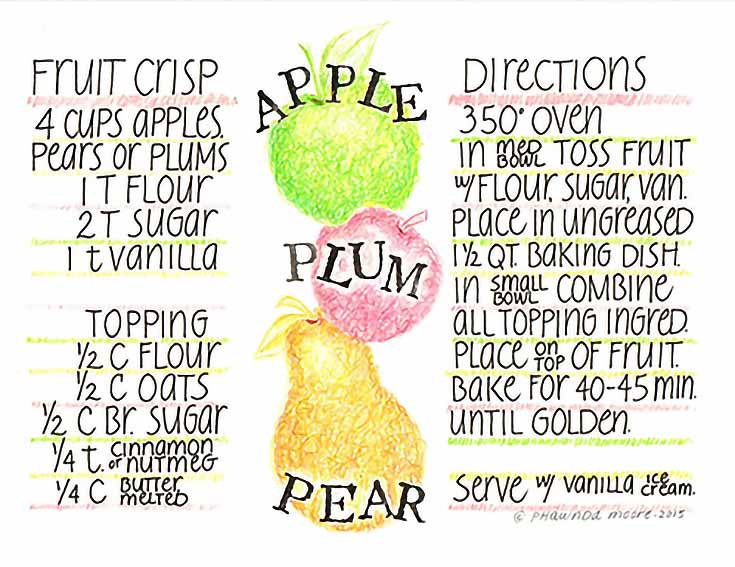 Fruit Crisp
4 cups apples.
pears or plums
1 T flour
2 T sugar
1 t vanilla
Topping
1/2 C flour
1/2 C oats
1/2 C Br. sugar
1/4 t. cinnamon or nutmeg
1/4 C butter melted
APPLE
PLUM
PEAR
Directions
350° oven
in med bowl toss fruit
w/ flour, sugar, van.
Place in ungreased
1½ QT. baking dish.
in small bowl combine
all topping ingred.
Place on top of fruit.
Bake for 40-45 min.
until golden.
Serve w/ vanilla ice cream.
© Phawnda Moore·2015